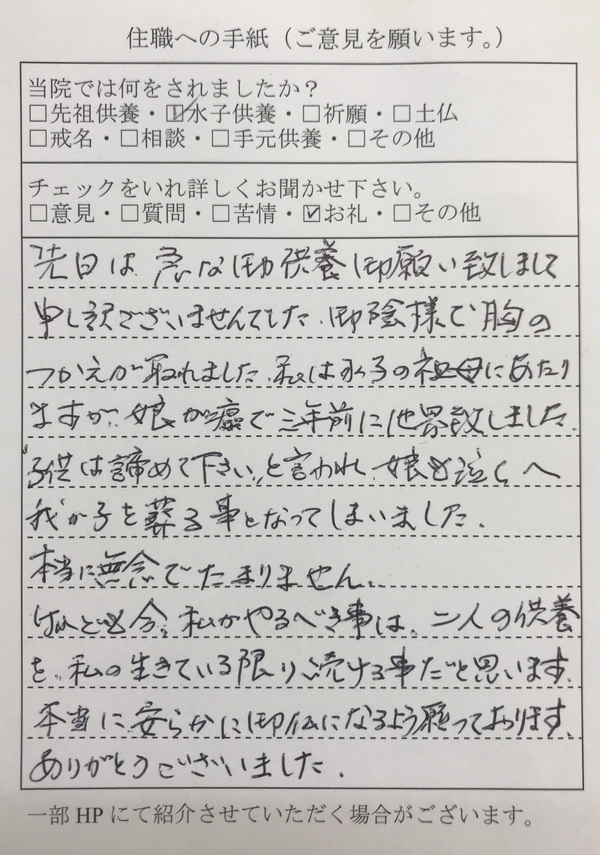 住職への手紙（ご意見を願います。）
当院では何をされましたか？
□先祖供養・☑水子供養・□祈願・□土仏
□戒名・□相談・□手元供養・□その他
チェックをいれ詳しくお聞かせ下さい。
□意見・□質問・□苦情・☑お礼・□その他
先日は急な御供養御願い致しまして
申し訳ございませんでした。御陰様で胸の
つかえが取れました。私は水子の祖母にあたり
ますが、娘が癌で三年前に他界致しました。
"子供は諦めて下さい"と言われ、娘も泣く〱
我が子を葬る事となってしまいました。
本当に無念でたまりません。
けれども今、私がやるべき事は、二人の供養
を、私の生きている限り続ける事だと思います。
本当に安らかに御仏になるよう願っております。
ありがとうございました。
一部HPにて紹介させていただく場合がございます。